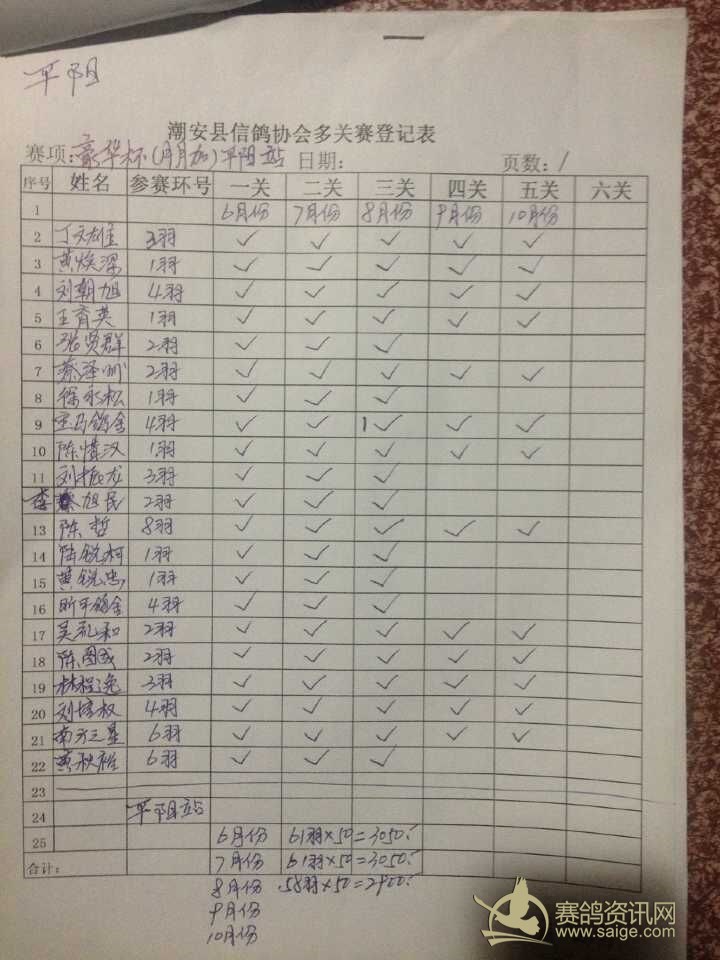 平阳
潮安县信鸽协会多关赛登记表
赛项:豪华杯(月月加)平阳站 日期: 页数:1
序号 姓名 参赛环号 一关 二关 三关 四关 五关 六关
1 6月份 7月份 8月份 9月份 10月份
2 丁文雄 3羽 ✓ ✓ ✓ ✓ ✓
3 黄焕深 1羽 ✓ ✓ ✓ ✓ ✓
4 刘朝旭 4羽 ✓ ✓ ✓ ✓ ✓
5 王育英 1羽 ✓ ✓ ✓ ✓ ✓
6 张贤群 2羽 ✓ ✓ ✓
7 蔡泽 2羽 ✓ ✓ ✓ ✓ ✓
8 徐永松 1羽 ✓ ✓ ✓
9 宝马鸽舍 4羽 ✓ ✓ 1✓ ✓ ✓
10 陈情汉 1羽 ✓ ✓ ✓ ✓ ✓
11 刘振龙 3羽 ✓ ✓ ✓
李 旭民 2羽 ✓ ✓ ✓
13 陈哲 8羽 ✓ ✓ ✓ ✓ ✓
14 陆锐柯 1羽 ✓ ✓ ✓
15 黄锐忠 1羽 ✓ ✓ ✓
16 昕平鸽舍 4羽 ✓ ✓ ✓
17 吴礼和 2羽 ✓ ✓ ✓ ✓ ✓
18 陈图 2羽 ✓ ✓ ✓ ✓ ✓
19 林程逸 3羽 ✓ ✓ ✓ ✓ ✓
20 刘培权 4羽 ✓ ✓ ✓ ✓ ✓
21 南方之星 6羽 ✓ ✓ ✓ ✓ ✓
22 黄秋雄 6羽 ✓ ✓ ✓
23
24 平阳站
25 6月份 61羽×50=3050.
合计: 7月份 61羽×50=3050.
8月份 58羽×50=2900.
9月份
10月份
赛鸽资讯网
www.saige.com